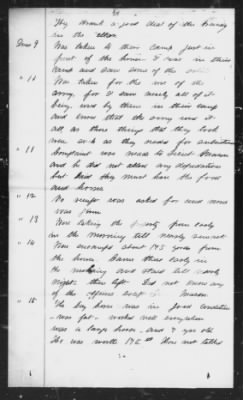 They drank a good deal of the brandy
in the cellar
Ques 9 Was taken to their camp just in
front of the house. I was in their
camp and saw some of the
" 10 Was taken for the use of the
army, for I saw nearly all of it
being used by them in their camp
and know that the army used it
all, as those things that they took
were such as they needed for subsistence
" 11 Complaint was made to
and he did not allow any depredations
but said they must have the food
and horses
" 12 No receipt was asked for and none
was given
" 13 Was taking the property from early
in the morning till nearly sunset
" 14 Was encamped about 145 yards from
the house. Came there early in
the morning and staid till nearly
night then left. Did not know any
of the officers except
" 15 The bay horse was in good condition
was fat - worked well everywhere
was a large horse - and 7 yrs old
He was worth 145 00 Have not talked